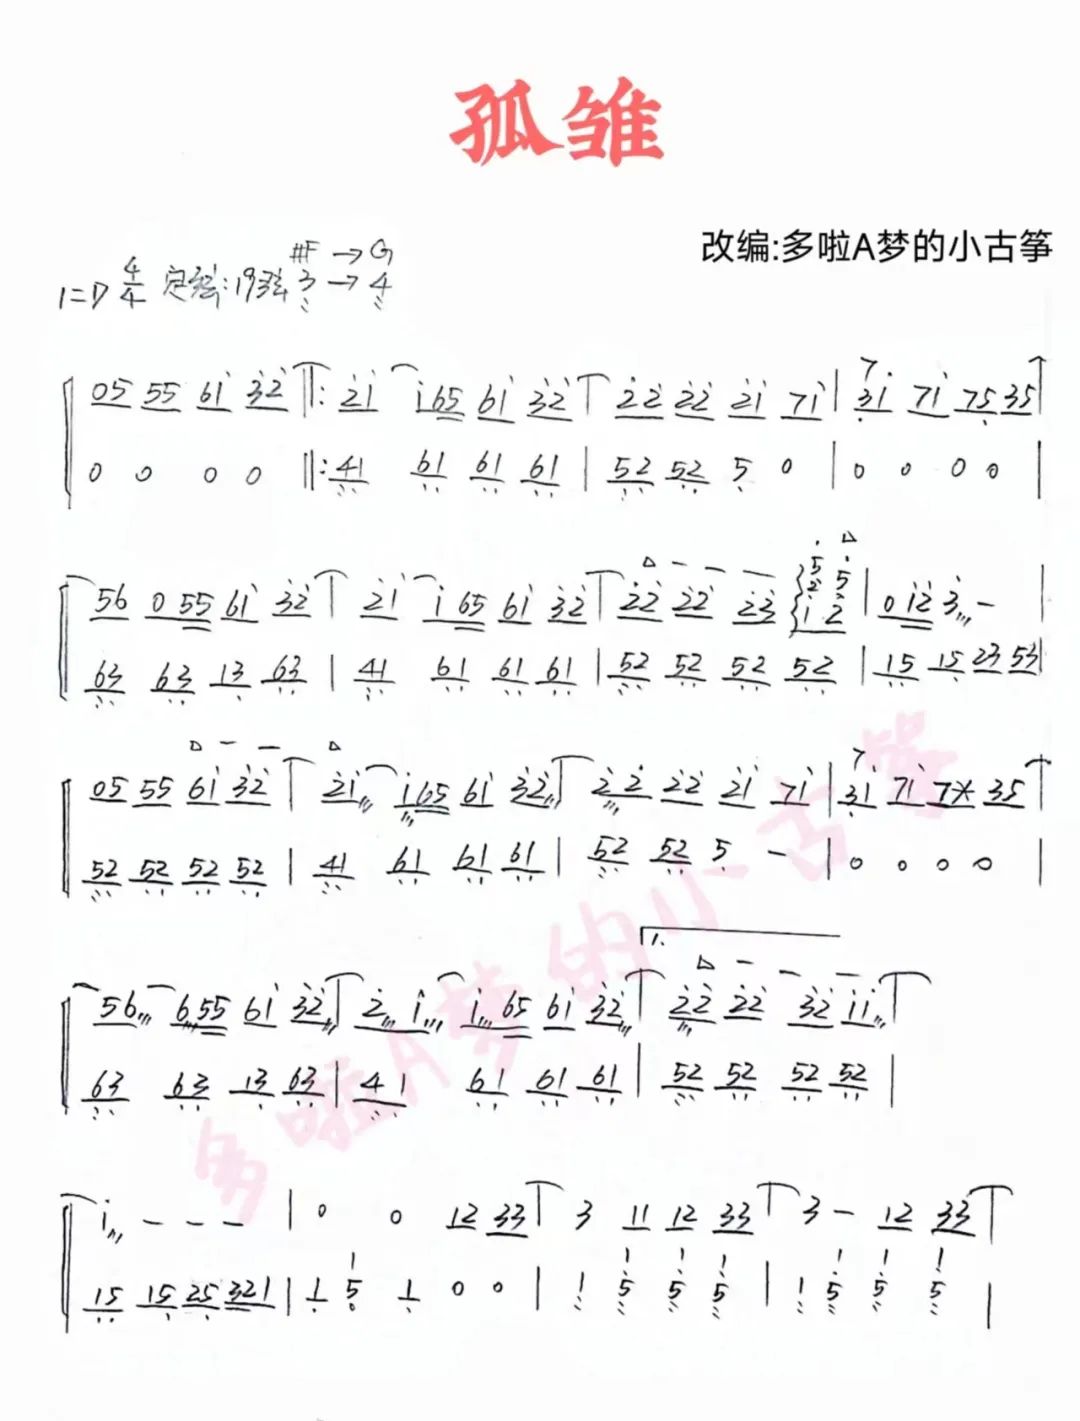 孤雏
改编:多啦A梦的小古筝
#F → G
1=D 4/4 定弦:19弦 3 → 4
05 55 61 32 ‖: 21 165 61 32 | 22 22 21 71 | 31 71 75 35 |
0 0 0 0 ‖: 41 61 61 61 | 52 52 5 0 | 0 0 0 0 |
56 0 55 61 32 | 21 165 61 32 | 22 22 23 | 0 12 3 - |
63 63 13 63 | 41 61 61 61 | 52 52 52 52 | 15 15 23 53 |
05 55 61 32 | 21 165 61 32 | 22 22 21 71 | 31 71 7* 35 |
52 52 52 52 | 41 61 61 61 | 52 52 5 - | 0 0 0 0 |
1.
56 655 61 32 | 2 1 1 65 61 32 | 22 22 32 11 |
63 63 13 63 | 41 61 61 61 | 52 52 52 52 |
1 - - - | 0 0 12 33 | 3 11 12 33 | 3 - 12 33 |
15 15 25 321 | 1 5 1 0 0 | 1 5 5 5 | 1 5 5 5 |
多啦A梦的小古筝